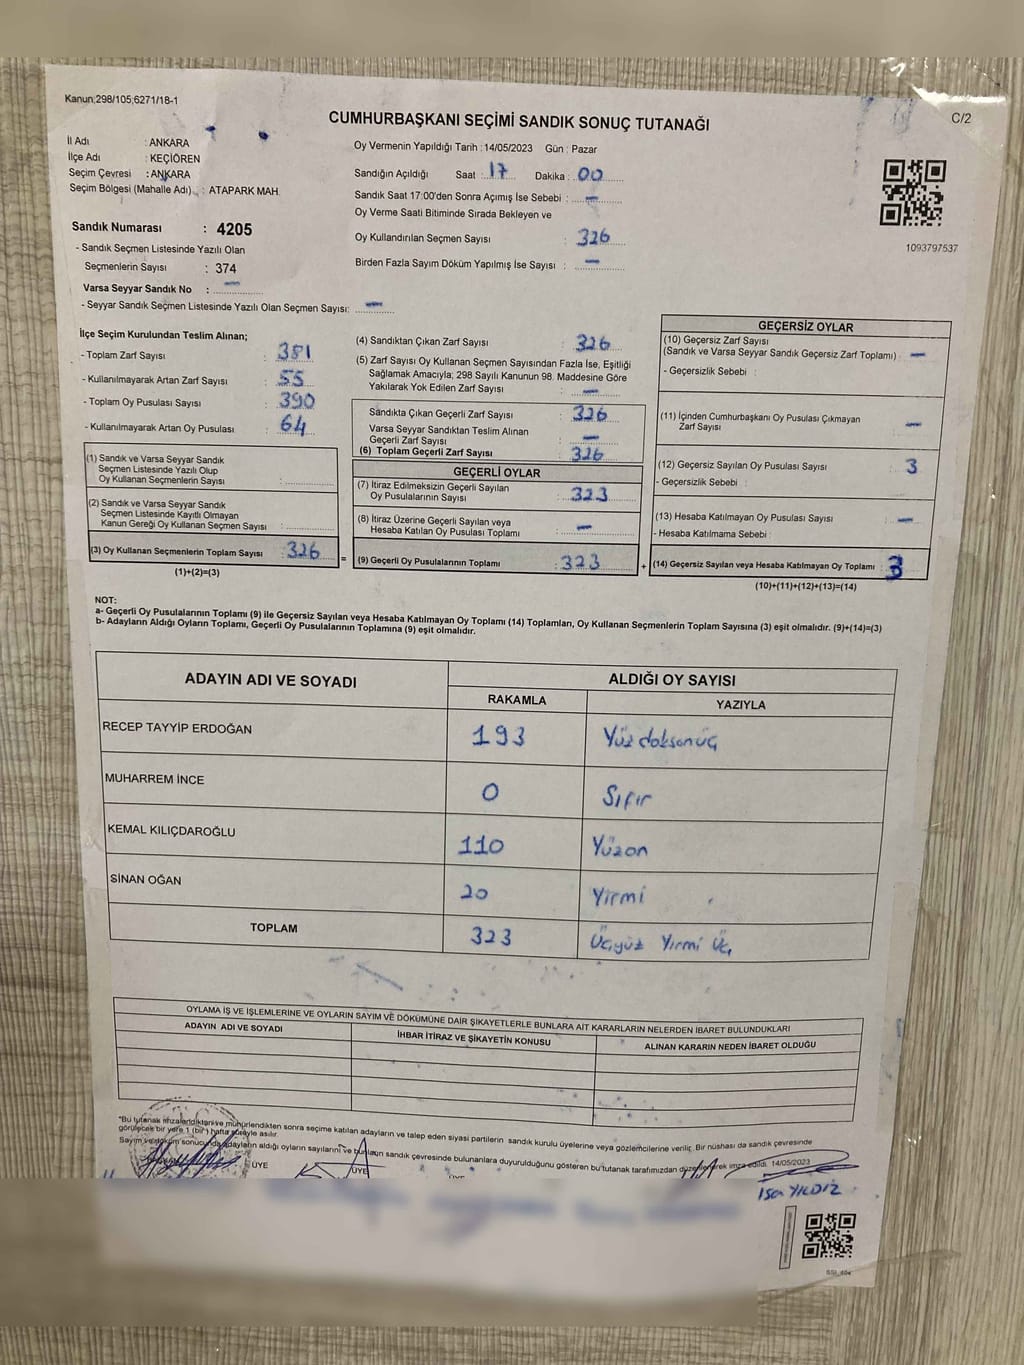 Kanun;298/105;6271/18-1
C/2
CUMHURBAŞKANI SEÇİMİ SANDIK SONUÇ TUTANAĞI
İl Adı : ANKARA
İlçe Adı : KEÇİÖREN
Seçim Çevresi : ANKARA
Seçim Bölgesi (Mahalle Adı) : ATAPARK MAH.
Sandık Numarası : 4205
- Sandık Seçmen Listesinde Yazılı Olan
Seçmenlerin Sayısı : 374
Varsa Seyyar Sandık No : —
- Seyyar Sandık Seçmen Listesinde Yazılı Olan Seçmen Sayısı: —
Oy Vermenin Yapıldığı Tarih : 14/05/2023 Gün : Pazar
Sandığın Açıldığı Saat : 17 Dakika : 00
Sandık Saat 17:00'den Sonra Açımış İse Sebebi : —
Oy Verme Saati Bitiminde Sırada Bekleyen ve
Oy Kullandırılan Seçmen Sayısı : 326
Birden Fazla Sayım Döküm Yapılmış İse Sayısı : —
1093797537
İlçe Seçim Kurulundan Teslim Alınan;
- Toplam Zarf Sayısı : 381
- Kullanılmayarak Artan Zarf Sayısı : 55
- Toplam Oy Pusulası Sayısı : 390
- Kullanılmayarak Artan Oy Pusulası : 64
(1) Sandık ve Varsa Seyyar Sandık
Seçmen Listesinde Yazılı Olup
Oy Kullanan Seçmenlerin Sayısı :
(2) Sandık ve Varsa Seyyar Sandık
Seçmen Listesinde Kayıtlı Olmayan
Kanun Gereği Oy Kullanan Seçmen Sayısı :
(3) Oy Kullanan Seçmenlerin Toplam Sayısı : 326
(1)+(2)=(3)
(4) Sandıktan Çıkan Zarf Sayısı : 326
(5) Zarf Sayısı Oy Kullanan Seçmen Sayısından Fazla İse, Eşitliği
Sağlamak Amacıyla; 298 Sayılı Kanunun 98. Maddesine Göre
Yakılarak Yok Edilen Zarf Sayısı : —
Sandıkta Çıkan Geçerli Zarf Sayısı : 326
Varsa Seyyar Sandıktan Teslim Alınan
Geçerli Zarf Sayısı : —
(6) Toplam Geçerli Zarf Sayısı : 326
GEÇERLİ OYLAR
(7) İtiraz Edilmeksizin Geçerli Sayılan
Oy Pusulalarının Sayısı : 323
(8) İtiraz Üzerine Geçerli Sayılan veya
Hesaba Katılan Oy Pusulası Toplamı : —
= (9) Geçerli Oy Pusulalarının Toplamı : 323
GEÇERSİZ OYLAR
(10) Geçersiz Zarf Sayısı
(Sandık ve Varsa Seyyar Sandık Geçersiz Zarf Toplamı) : —
- Geçersizlik Sebebi :
(11) İçinden Cumhurbaşkanı Oy Pusulası Çıkmayan
Zarf Sayısı : —
(12) Geçersiz Sayılan Oy Pusulası Sayısı : 3
- Geçersizlik Sebebi :
(13) Hesaba Katılmayan Oy Pusulası Sayısı : —
- Hesaba Katılmama Sebebi :
+ (14) Geçersiz Sayılan veya Hesaba Katılmayan Oy Toplamı : 3
(10)+(11)+(12)+(13)=(14)
NOT:
a- Geçerli Oy Pusulalarının Toplamı (9) ile Geçersiz Sayılan veya Hesaba Katılmayan Oy Toplamı (14) Toplamları, Oy Kullanan Seçmenlerin Toplam Sayısına (3) eşit olmalıdır. (9)+(14)=(3)
b- Adayların Aldığı Oyların Toplamı, Geçerli Oy Pusulalarının Toplamına (9) eşit olmalıdır.
ADAYIN ADI VE SOYADI
ALDIĞI OY SAYISI
RAKAMLA YAZIYLA
RECEP TAYYİP ERDOĞAN 193 Yüz doksanüç
MUHARREM İNCE 0 Sıfır
KEMAL KILIÇDAROĞLU 110 Yüzon
SİNAN OĞAN 20 Yirmi
TOPLAM 323 Üçyüz Yirmi Üç
OYLAMA İŞ VE İŞLEMLERİNE VE OYLARIN SAYIM VE DÖKÜMÜNE DAİR ŞİKAYETLERLE BUNLARA AİT KARARLARIN NELERDEN İBARET BULUNDUKLARI
ADAYIN ADI VE SOYADI İHBAR İTİRAZ VE ŞİKAYETİN KONUSU ALINAN KARARIN NEDEN İBARET OLDUĞU
*Bu tutanak imzalandıktan ve mühürlendikten sonra seçime katılan adayların ve talep eden siyasi partilerin sandık kurulu üyelerine veya gözlemcilerine verilir. Bir nüshası da sandık çevresinde
görülecek bir yere 1 (bir) hafta süreyle asılır.
Sayım ve döküm sonucunda adayların aldığı oyların sayılarını ve bunların sandık çevresinde bulunanlara duyurulduğunu gösteren bu tutanak tarafımızdan düzenlenerek imza edildi. 14/05/2023
ÜYE ÜYE
İsa YILDIZ